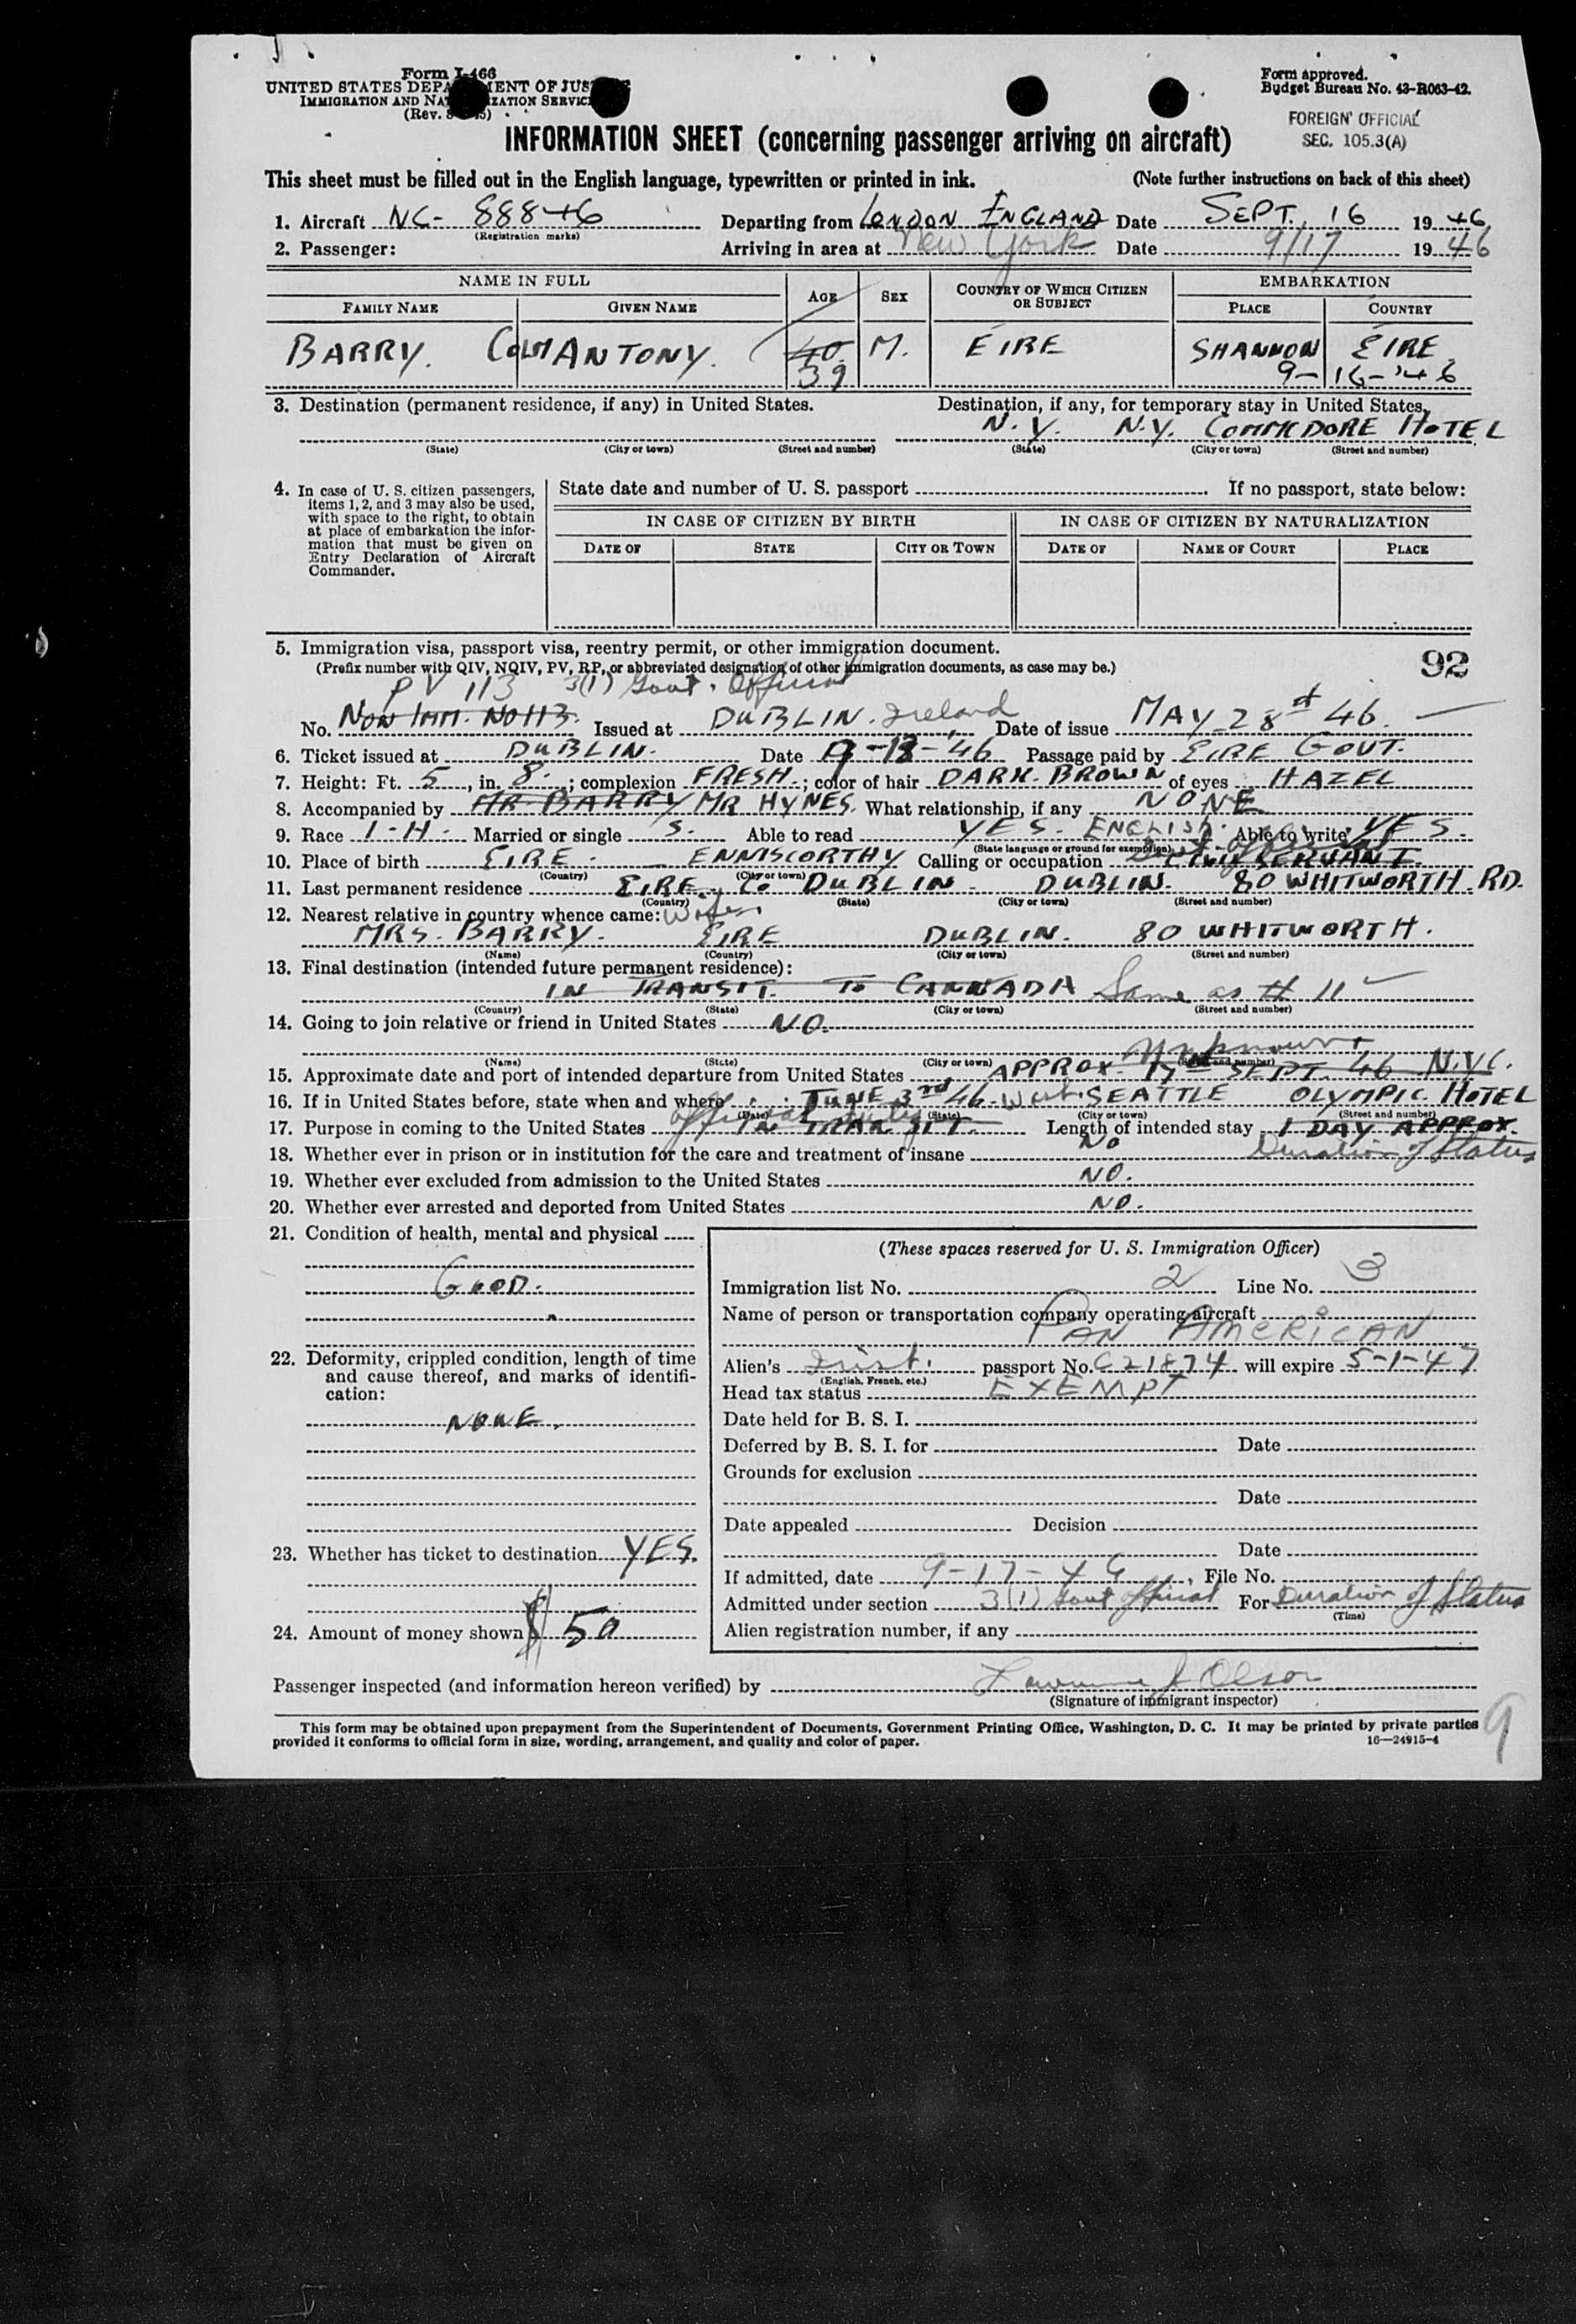 Form I-466
UNITED STATES DEPARTMENT OF JUSTICE
IMMIGRATION AND NATURALIZATION SERVICE
(Rev.
Form approved.
Budget Bureau No. 43-R063-42.
FOREIGN OFFICIAL
SEC. 105.3(A)
INFORMATION SHEET (concerning passenger arriving on aircraft)
This sheet must be filled out in the English language, typewritten or printed in ink. (Note further instructions on back of this sheet)
1. Aircraft NC- 88846 Departing from LONDON ENGLAND Date SEPT. 16 1946
(Registration marks)
2. Passenger: Arriving in area at New York Date 9/17 1946
NAME IN FULL AGE SEX COUNTRY OF WHICH CITIZEN OR SUBJECT EMBARKATION
FAMILY NAME GIVEN NAME PLACE COUNTRY
BARRY. COLM ANTONY. 40 M. EIRE SHANNON EIRE
39 9-16-'46
3. Destination (permanent residence, if any) in United States. Destination, if any, for temporary stay in United States.
N.Y. N.Y. COMMODORE HOTEL
(State) (City or town) (Street and number) (State) (City or town) (Street and number)
4. In case of U. S. citizen passengers, items 1, 2, and 3 may also be used, with space to the right, to obtain at place of embarkation the information that must be given on Entry Declaration of Aircraft Commander.
State date and number of U. S. passport If no passport, state below:
IN CASE OF CITIZEN BY BIRTH IN CASE OF CITIZEN BY NATURALIZATION
DATE OF STATE CITY OR TOWN DATE OF NAME OF COURT PLACE
5. Immigration visa, passport visa, reentry permit, or other immigration document.
(Prefix number with QIV, NQIV, PV, RP, or abbreviated designation of other immigration documents, as case may be.)
92
PV 113 3(1) Govt. Official
No. NON IMM. NO 113. Issued at DUBLIN. Ireland Date of issue MAY 28 46.
6. Ticket issued at DUBLIN. Date 9-13-'46 Passage paid by EIRE GOVT.
7. Height: Ft. 5, in. 8.; complexion FRESH.; color of hair DARK. BROWN of eyes HAZEL
8. Accompanied by MR. BARRY MR HYNES. What relationship, if any NONE
9. Race I-H. Married or single S. Able to read YES. ENGLISH. Able to write YES.
(State language or ground for exemption)
10. Place of birth EIRE. ENNISCORTHY Calling or occupation CIVIL SERVANT. Govt. official
(Country) (City or town)
11. Last permanent residence EIRE. Co DUBLIN. DUBLIN. 80 WHITWORTH. RD.
(Country) (State) (City or town) (Street and number)
12. Nearest relative in country whence came: Wife
MRS. BARRY. EIRE DUBLIN. 80 WHITWORTH.
(Name) (Country) (City or town) (Street and number)
13. Final destination (intended future permanent residence):
IN TRANSIT. TO CANNADA Same as # 11
(Country) (State) (City or town) (Street and number)
14. Going to join relative or friend in United States NO.
Unknown
(Name) (State) (City or town) (Street and number)
15. Approximate date and port of intended departure from United States APPROX SEPT. 46 N.Y.C.
16. If in United States before, state when and where JUNE 3rd 46. SEATTLE OLYMPIC HOTEL
(Date) (State) (City or town) (Street and number)
official duties
17. Purpose in coming to the United States IN TRANSIT. Length of intended stay 1 DAY APPROX.
Duration of Status
18. Whether ever in prison or in institution for the care and treatment of insane NO
19. Whether ever excluded from admission to the United States NO.
20. Whether ever arrested and deported from United States NO.
21. Condition of health, mental and physical
GOOD.
22. Deformity, crippled condition, length of time and cause thereof, and marks of identification:
NONE.
23. Whether has ticket to destination YES.
24. Amount of money shown $ 50
(These spaces reserved for U. S. Immigration Officer)
Immigration list No. 2 Line No. 3
Name of person or transportation company operating aircraft
PAN AMERICAN
Alien's Irish. passport No. C21874 will expire 5-1-47
(English, French, etc.)
Head tax status EXEMPT
Date held for B. S. I.
Deferred by B. S. I. for Date
Grounds for exclusion
Date
Date appealed Decision
Date
If admitted, date 9-17-46, File No.
Admitted under section 3(1) Govt official For Duration of Status
(Time)
Alien registration number, if any
Passenger inspected (and information hereon verified) by Lawrence J Olson
(Signature of immigrant inspector)
This form may be obtained upon prepayment from the Superintendent of Documents, Government Printing Office, Washington, D. C. It may be printed by private parties
provided it conforms to official form in size, wording, arrangement, and quality and color of paper. 16—24915-4
9